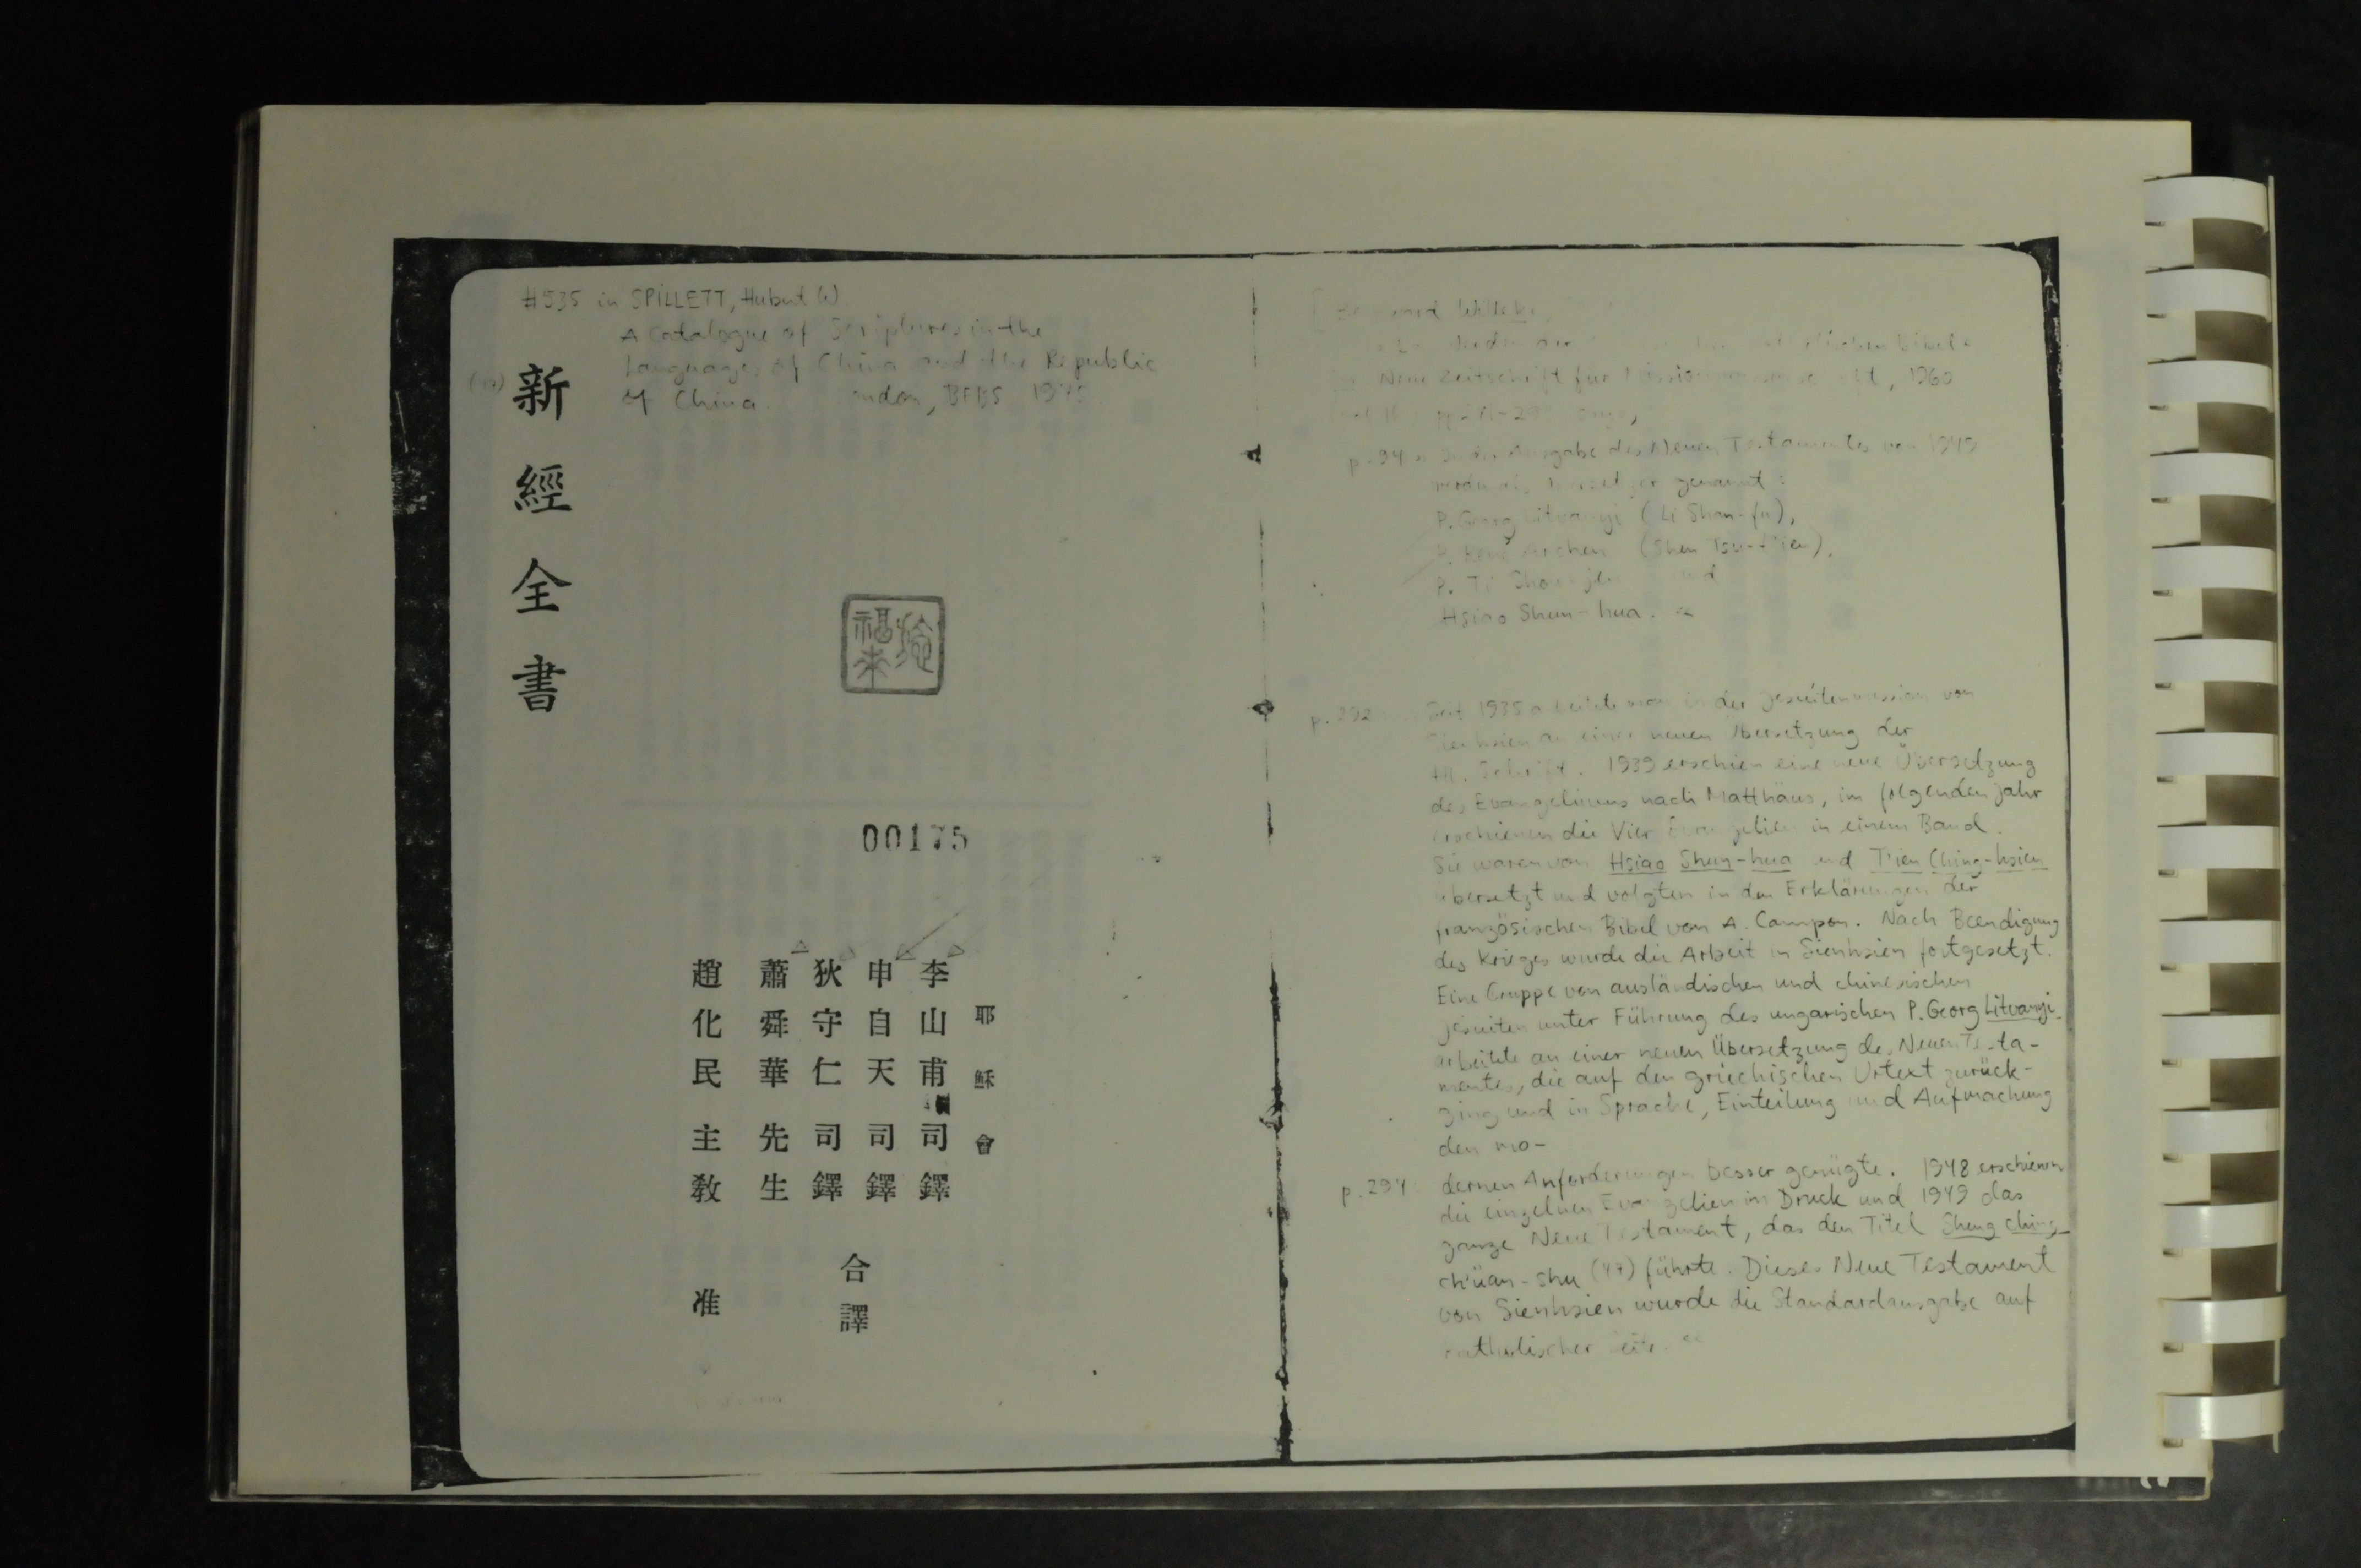 #535 in SPILLETT, Hubert W.
A Catalogue of Scriptures in the
Languages of China and the Republic
of China. BFBS 1975
(47)
新經全書
福
00175
耶穌會
李山甫司鐸
申自天司鐸
狄守仁司鐸
蕭舜華先生
合譯
趙化民主教准
Willeke
Neue Zeitschrift für 1960
Ausgabe des Neuen Testamentes von 1949
genannt:
P. Georg Litvanyi (Li Shan-fu),
P. René Archen (Shen Tsu-t'ien),
P. Ti
Hsiao Shun-hua. «
p. 292 Seit 1935 arbeitete man in der Jesuitenmission von
Sienhsien an einer neuen Übersetzung der
Hl. Schrift. 1939 erschien eine neue Übersetzung
des Evangeliums nach Matthäus, im folgenden Jahr
erschienen die Vier Evangelien in einem Band.
Sie waren von Hsiao Shun-hua und T'ien Ching-hsien
übersetzt und volgten in den Erklärungen der
französischen Bibel von A. Campon. Nach Beendigung
des Krieges wurde die Arbeit in Sienhsien fortgesetzt.
Eine Gruppe von ausländischen und chinesischen
Jesuiten unter Führung des ungarischen P. Georg Litvanyi
arbeitete an einer neuen Übersetzung des Neuen Testa-
mentes, die auf den griechischen Urtext zurück-
ging und in Sprache, Einteilung und Aufmachung
den mo-
p. 294: dernen Anforderungen besser genügte. 1948 erschienen
die einzelnen Evangelien im Druck und 1949 das
ganze Neue Testament, das den Titel Sheng ching
ch'üan-shu (47) führte. Dieses Neue Testament
von Sienhsien wurde die Standardausgabe auf
katholischer Seite. «